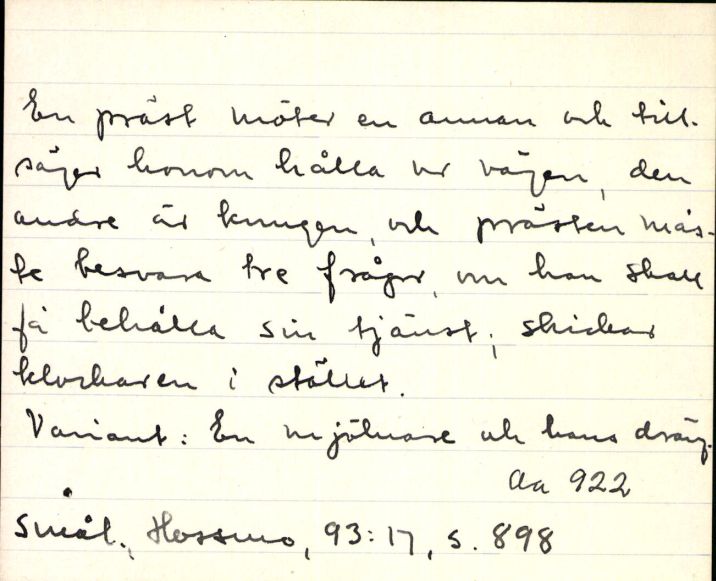 En präst möter en annan och till-
säger honom hålla ur vägen, den
andre är kungen, och prästen mås-
te besvara tre frågor, om han skall
få behålla sin tjänst; skickar
klockaren i stället.
Variant: En mjölnare och hans dräng.
Aa 922
Smål., Hossmo, 93:17, s. 898